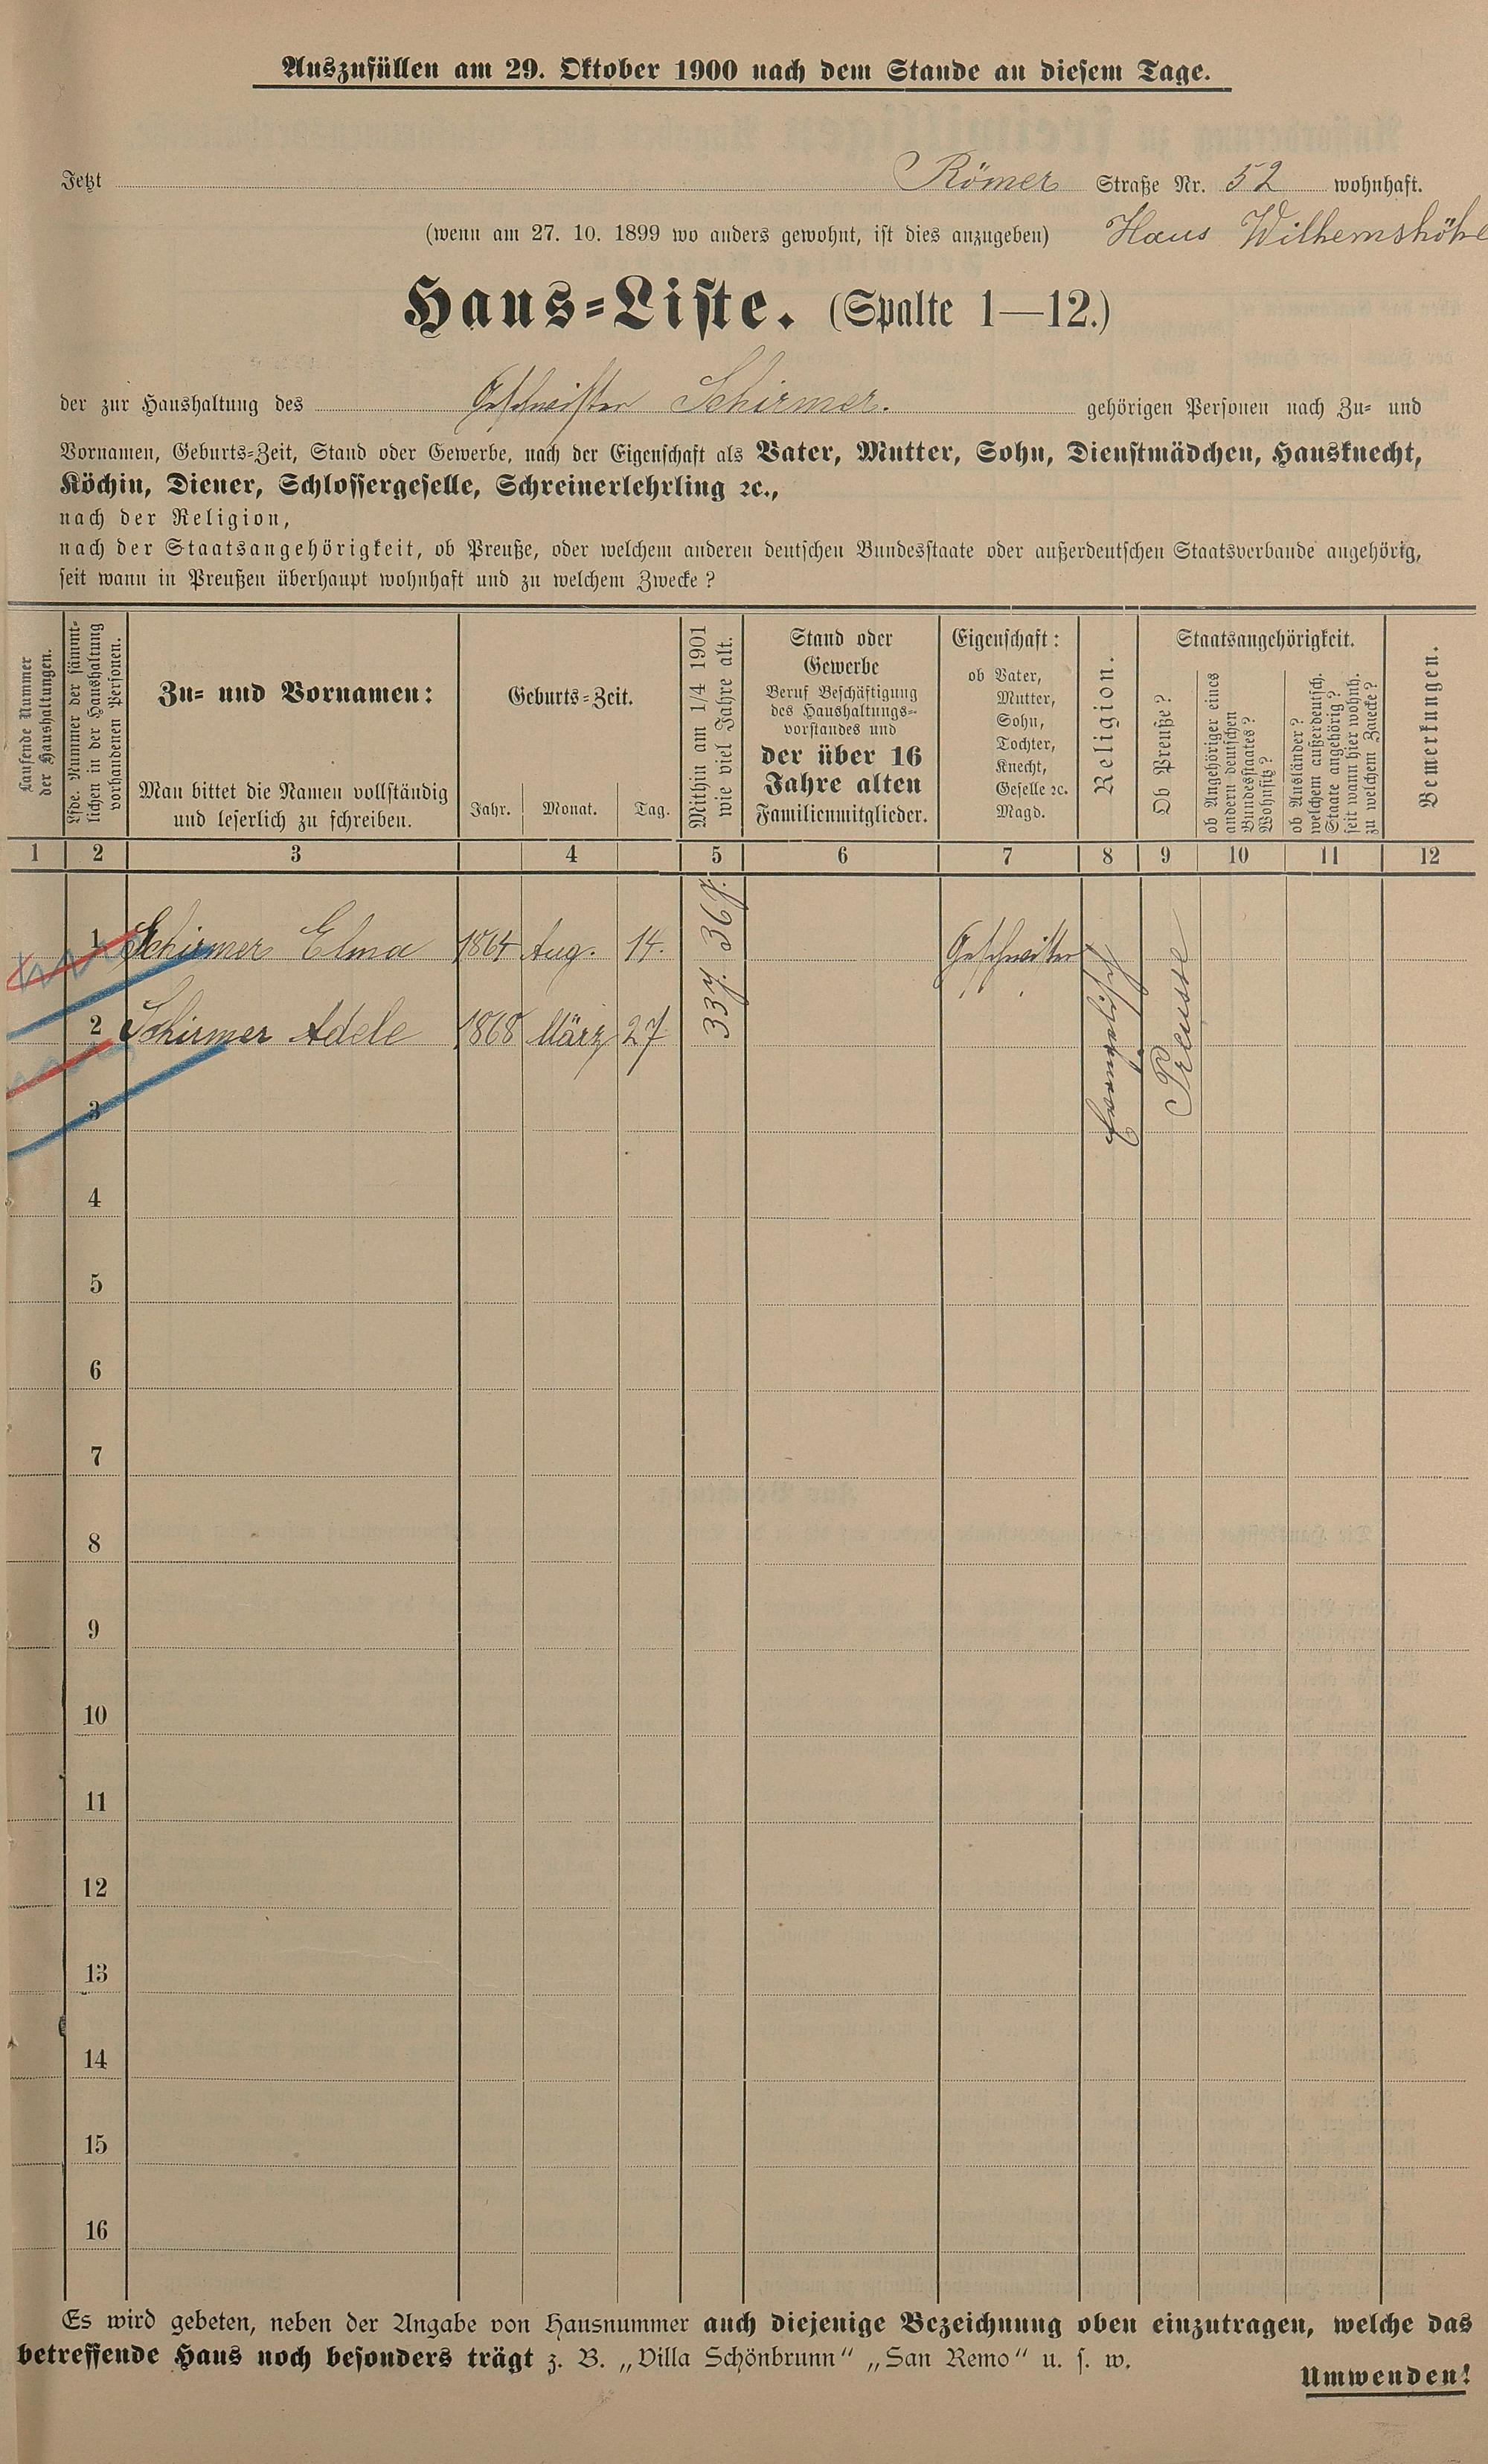 Auszufüllen am 29. Oktober 1900 nach dem Stande an diesem Tage.
Jetzt Römer Straße Nr. 52 wohnhaft.
(wenn am 27. 10. 1899 wo anders gewohnt, ist dies anzugeben) Haus Wilhemshöhe
Haus-Liste. (Spalte 1—12.)
der zur Haushaltung des Geschwister Schirmer. gehörigen Personen nach Zu- und
Vornamen, Geburts-Zeit, Stand oder Gewerbe, nach der Eigenschaft als Vater, Mutter, Sohn, Dienstmädchen, Hausknecht,
Köchin, Diener, Schlossergeselle, Schreinerlehrling ꝛc.,
nach der Religion,
nach der Staatsangehörigkeit, ob Preuße, oder welchem anderen deutschen Bundesstaate oder außerdeutschen Staatsverbande angehörig,
seit wann in Preußen überhaupt wohnhaft und zu welchem Zwecke?
Laufende Nummer
der Haushaltungen.
Lfde. Nummer der sämmt-
lichen in der Haushaltung
vorhandenen Personen.
Zu- und Vornamen:
Man bittet die Namen vollständig
und leserlich zu schreiben.
Geburts-Zeit.
Jahr. Monat. Tag.
Mithin am 1/4 1901
wie viel Jahre alt.
Stand oder
Gewerbe
Beruf Beschäftigung
des Haushaltungs-
vorstandes und
der über 16
Jahre alten
Familienmitglieder.
Eigenschaft:
ob Vater,
Mutter,
Sohn,
Tochter,
Knecht,
Geselle ꝛc.
Magd.
Religion.
Staatsangehörigkeit.
Ob Preuße?
ob Angehöriger eines
andern deutschen
Bundesstaates?
Wohnsitz?
ob Ausländer?
welchem außerdeutsch.
Staate angehörig?
seit wann hier wohnh.
zu welchem Zwecke?
Bemerkungen.
1 2 3 4 5 6 7 8 9 10 11 12
1 Schirmer Elma 1864 Aug. 14. 36 J. Geschwister evangelisch Preusse
2 Schirmer Adele 1868 März 27 33 J.
3
4
5
6
7
8
9
10
11
12
13
14
15
16
Es wird gebeten, neben der Angabe von Hausnummer auch diejenige Bezeichnung oben einzutragen, welche das
betreffende Haus noch besonders trägt z. B. „Villa Schönbrunn“ „San Remo“ u. s. w.
Umwenden!